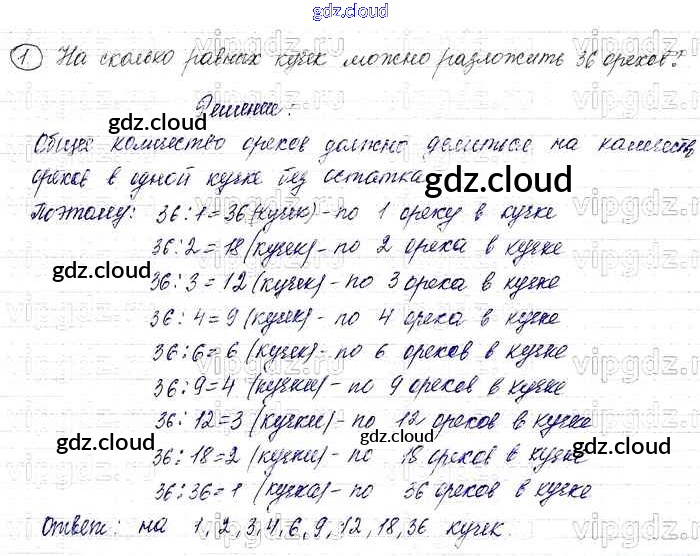 gdz.cloud
1 На сколько равных кучек можно разложить 36 орехов?
Решение:
gdz.cloud
Общее количество орехов должно делиться на количеств
орехов в одной кучке без остатка
gdz.cloud
Поэтому: 36:1=36 (кучек) - по 1 ореху в кучке
36:2=18 (кучек) - по 2 ореха в кучке
gdz.cloud
gdz.cloud
36:3=12 (кучек) - по 3 ореха в кучке
36:4=9 (кучек) - по 4 ореха в кучке
36:6=6 (кучек) - по 6 орехов в кучке
36:9=4 (кучки) - по 9 орехов в кучке
36:12=3 (кучки) - по 12 орехов в кучке
gdz.cloud
gdz.cloud
gdz.cloud
36:18=2 (кучки) - по 18 орехов в кучке
36:36=1 (кучка) - по 36 орехов в кучке
Ответ: на 1,2,3,4,6,9,12,18,36 кучек.